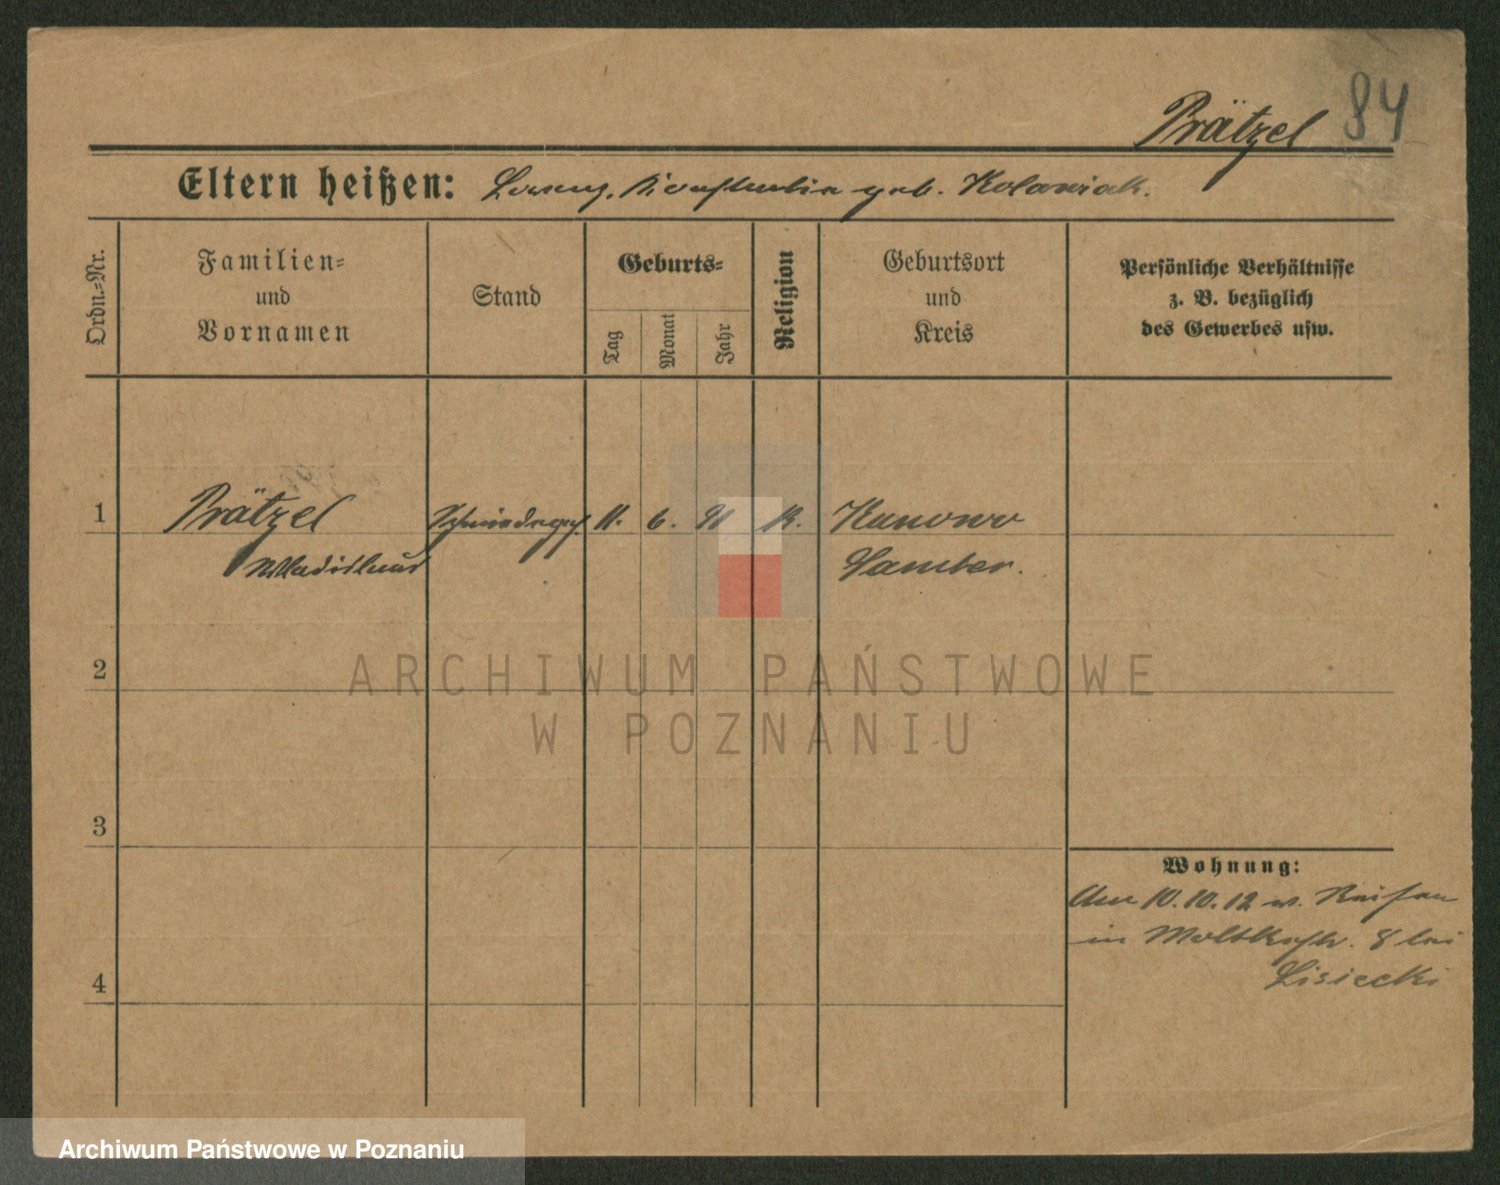 84
Prätzel
Eltern heißen: Lorenz, geb. Kolaniak.
Ordn.-Nr.
Familien-
und
Vornamen
Stand
Geburts-
Tag
Monat
Jahr
Religion
Geburtsort
und
Kreis
Persönliche Verhältnisse
z. B. bezüglich
des Gewerbes usw.
1 Prätzel Schmiedeges. 11. 6. 91 K. Kunowo
Wladislaus Samter.
2
ARCHIWUM PAŃSTWOWE
W POZNANIU
3
Wohnung:
Am 10.10.12 v. Reisen
in Moltkestr. 8 bei
Lisiecki
4
Archiwum Państwowe w Poznaniu